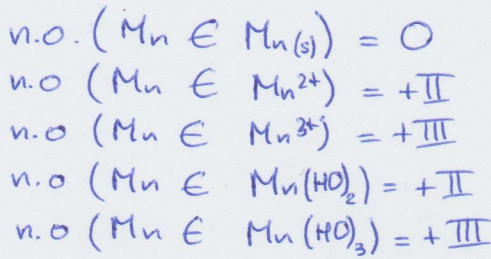 n.o. (Mn ∈ Mn(s)) = 0
n.o (Mn ∈ Mn²⁺) = +II
n.o (Mn ∈ Mn³⁺) = +III
n.o (Mn ∈ Mn(HO)₂) = +II
n.o (Mn ∈ Mn(HO)₃) = +III